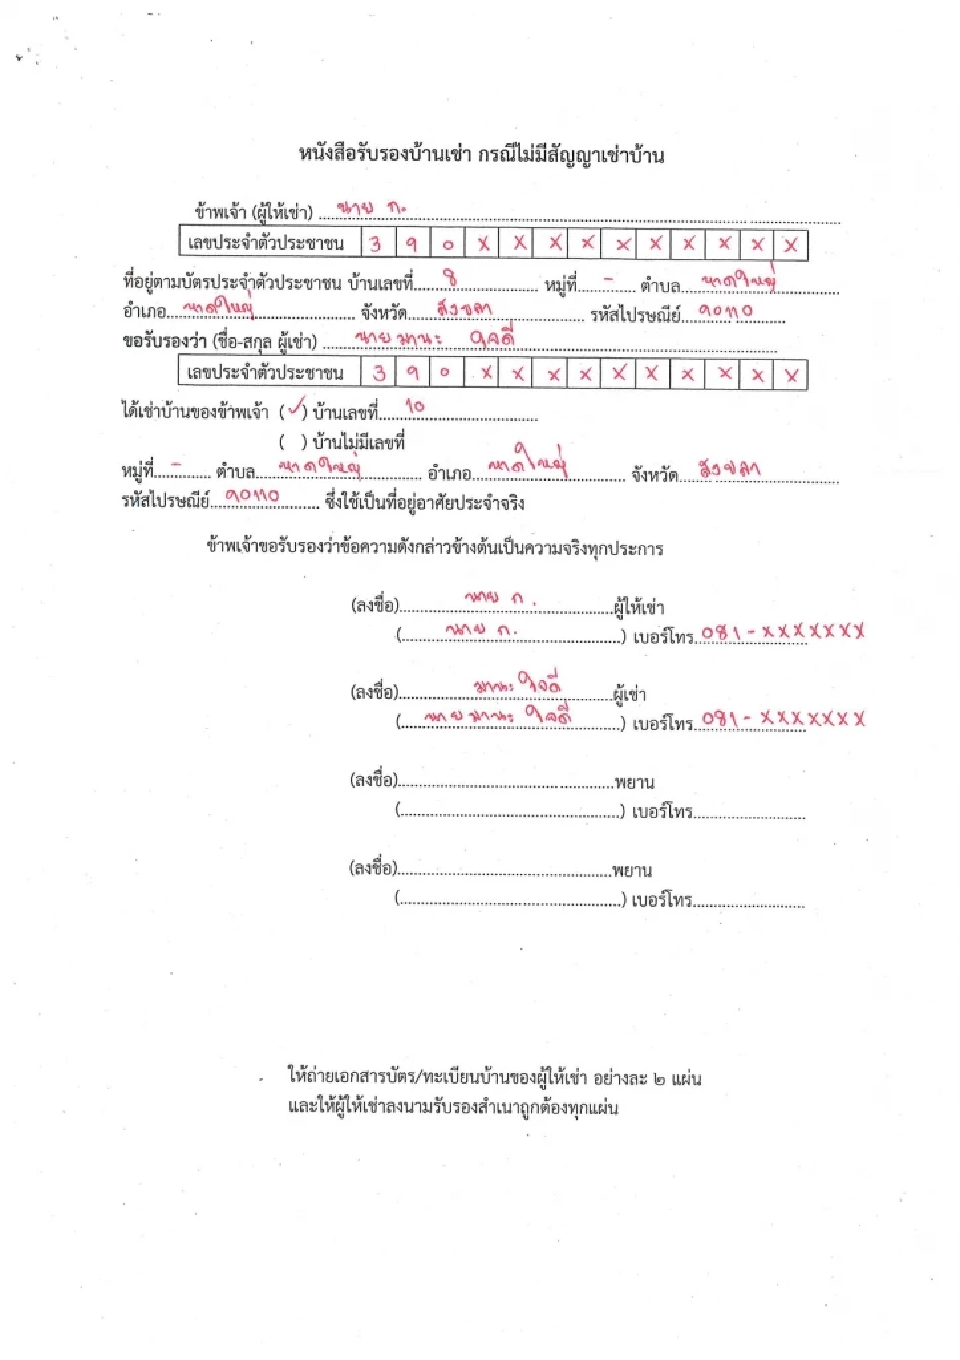 หนังสือรับรองบ้านเช่า กรณีไม่มีสัญญาเช่าบ้าน
ข้าพเจ้า (ผู้ให้เช่า) นาย ก.
เลขประจำตัวประชาชน 3 9 0 X X X X X X X X X X
ที่อยู่ตามบัตรประจำตัวประชาชน บ้านเลขที่ 8 หมู่ที่ - ตำบล หาดใหญ่
อำเภอ หาดใหญ่ จังหวัด สงขลา รหัสไปรษณีย์ 90110
ขอรับรองว่า (ชื่อ-สกุล ผู้เช่า) นาย มานะ ใจดี
เลขประจำตัวประชาชน 3 9 0 X X X X X X X X X X
ได้เช่าบ้านของข้าพเจ้า (✓) บ้านเลขที่ 10
( ) บ้านไม่มีเลขที่
หมู่ที่ - ตำบล หาดใหญ่ อำเภอ หาดใหญ่ จังหวัด สงขลา
รหัสไปรษณีย์ 90110 ซึ่งใช้เป็นที่อยู่อาศัยประจำจริง
ข้าพเจ้าขอรับรองว่าข้อความดังกล่าวข้างต้นเป็นความจริงทุกประการ
(ลงชื่อ) นาย ก. ผู้ให้เช่า
( นาย ก. ) เบอร์โทร 081-XXXXXXX
(ลงชื่อ) มานะ ใจดี ผู้เช่า
( นาย มานะ ใจดี ) เบอร์โทร 081-XXXXXXX
(ลงชื่อ)..........พยาน
(..........) เบอร์โทร..........
(ลงชื่อ)..........พยาน
(..........) เบอร์โทร..........
ให้ถ่ายเอกสารบัตร/ทะเบียนบ้านของผู้ให้เช่า อย่างละ ๒ แผ่น
และให้ผู้ให้เช่าลงนามรับรองสำเนาถูกต้องทุกแผ่น